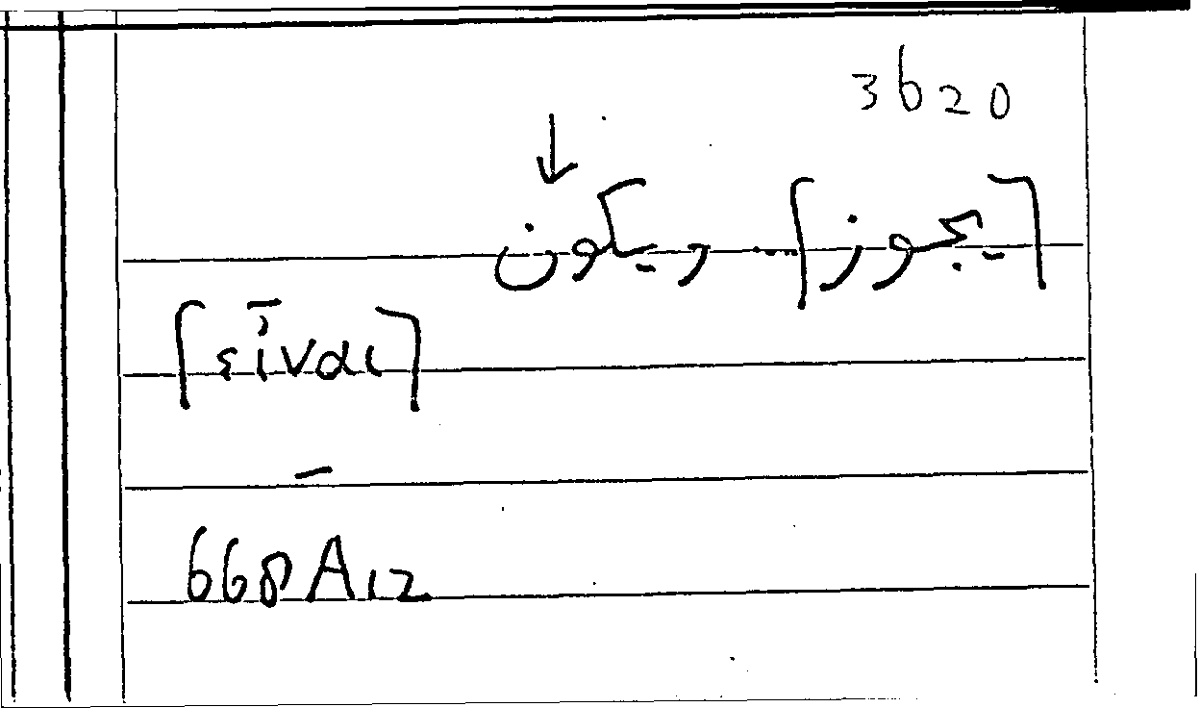 3b20
↓
[يجوز] ... ويكون
[εἶναι]
–
668A12